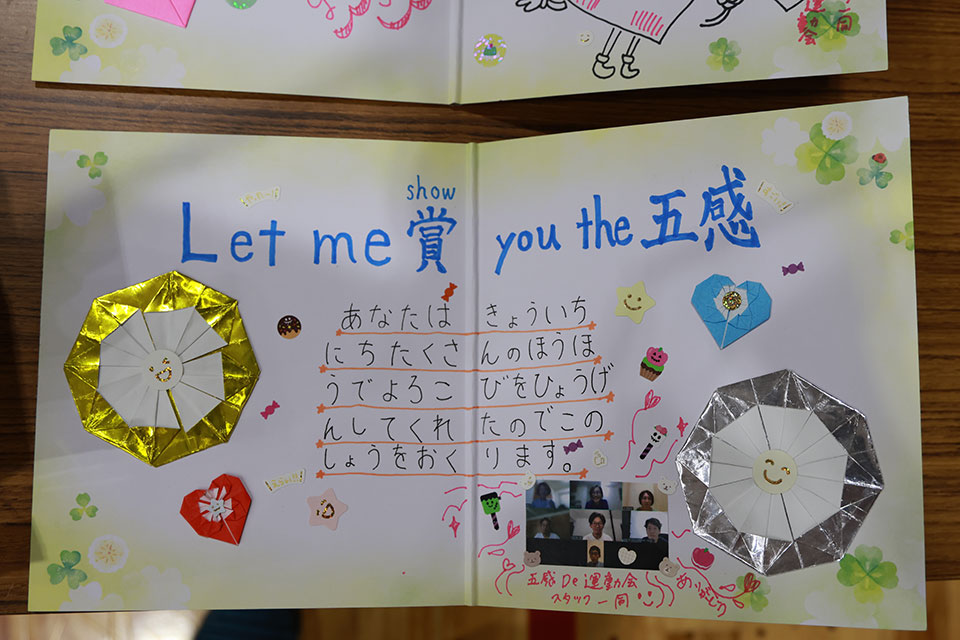 一同
運動会
show
Let me 賞 you the 五感
あなたは きょういち
にちたくさ んのほうほ
うでよろこ びをひょうげ
んしてくれ たのでこの
しょうをおく ります。
五感De運動会
スタッフ一同
ありがとう